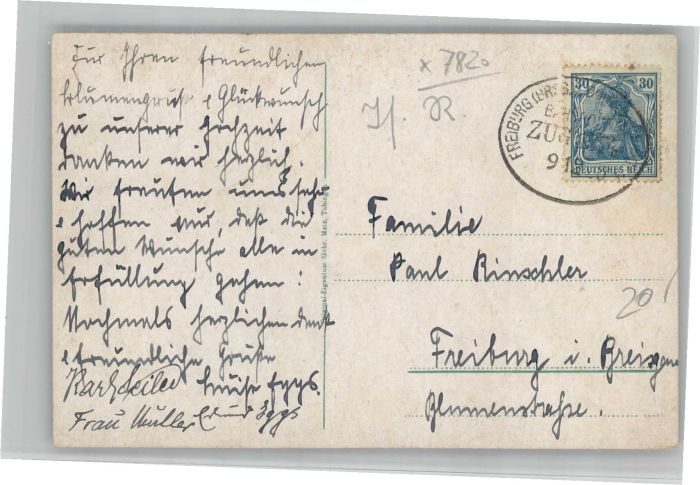 Für Ihren freundlichen
Blumengruß & Glückwunsch
zu unserer Hochzeit
danken wir herzlich.
Wir freuten uns sehr
& hoffen nur, daß die
guten Wünsche alle in
Erfüllung gehen!
Nochmals herzlichen Dank
& freundliche Grüße
Luise Eggs.
Karl Seiler
Frau Müller Edmund Eggs
Gebr. Metz, Tübingen
x 7820
R
FREIBURG (BRSG
ZUG
91
30 30
DEUTSCHES REICH
Familie
Paul Rinschler
20
Freiburg i. Breisgau
Blumenstrasse.